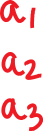 a1
a2
a3